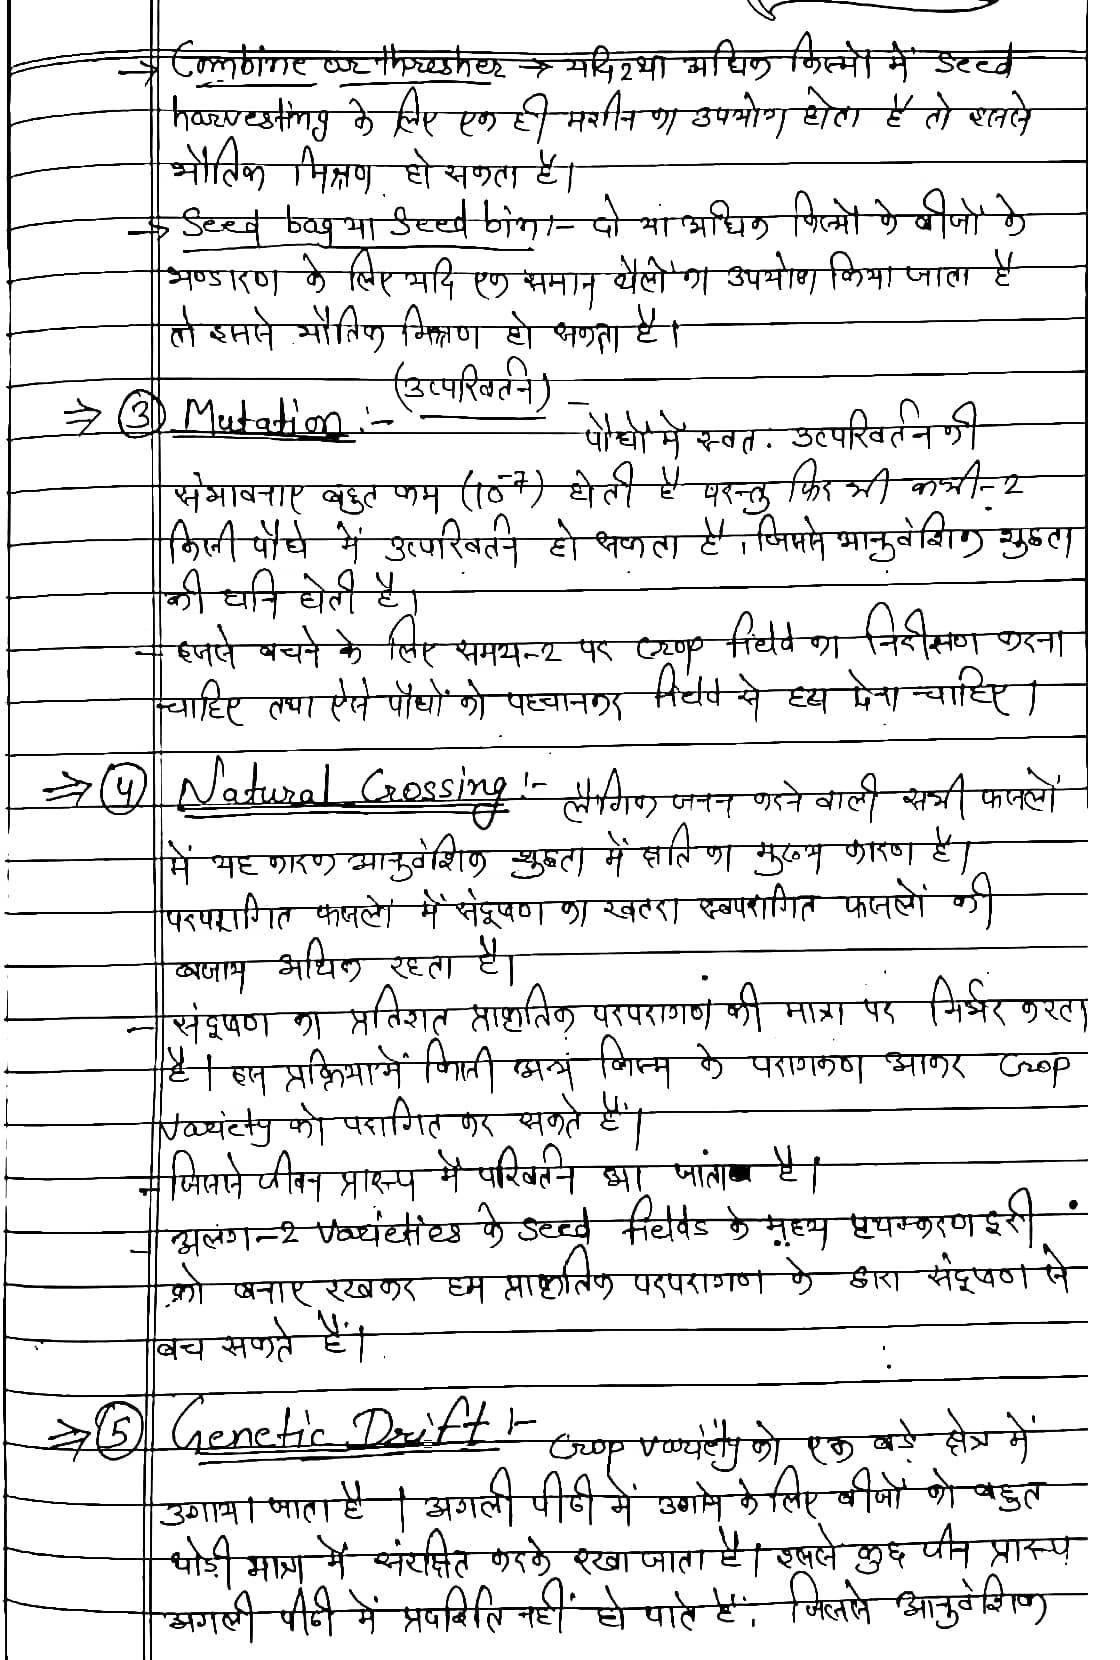 → Combine or thresher → यदि 2 या अधिक किस्मों में seed
harvesting के लिए एक ही मशीन का उपयोग होता है तो इससे
भौतिक मिश्रण हो सकता है।
→ Seed bag या Seed bin:- दो या अधिक किस्मों के बीजों के
भण्डारण के लिए यदि एक समान थैलों का उपयोग किया जाता है
तो इससे भौतिक मिश्रण हो सकता है।
(उत्परिवर्तन)
⇒ ③ Mutation :- पौधों में स्वत: उत्परिवर्तन की
संभावनाए बहुत कम (10⁻⁷) होती है परन्तु फिर भी कभी-2
किसी पौधे में उत्परिवर्तन हो सकता है, जिससे आनुवंशिक शुद्धता
की हानि होती है।
- इससे बचने के लिए समय-2 पर Crop field का निरीक्षण करना
चाहिए तथा ऐसे पौधों को पहचानकर field से हटा देना चाहिए।
⇒ ④ Natural Crossing :- लैंगिक जनन करने वाली सभी फसलों
में यह कारक आनुवंशिक शुद्धता में क्षति का मुख्य कारण है।
परपरागित फसलों में संदूषण का खतरा स्वपरागित फसलों की
बजाय अधिक रहता है।
- संदूषण का प्रतिशत प्राकृतिक परपरागण की मात्रा पर निर्भर करता
है। इस प्रक्रिया में किसी अन्य किस्म के परागकण आकर Crop
Variety को परागित कर सकते हैं।
- जिससे जीवन प्रारूप में परिवर्तन आ जाता है।
- अलग-2 Varieties के Seed fields के मध्य पृथक्करण दूरी
को बनाए रखकर हम प्राकृतिक परपरागण के द्वारा संदूषण से
बच सकते हैं।
⇒ ⑤ Genetic Drift :- Crop Variety को एक बड़े क्षेत्र में
उगाया जाता है। अगली पीढी में उगाने के लिए बीजों को बहुत
थोड़ी मात्रा में संरक्षित करके रखा जाता है। इससे कुछ जीन प्रारूप
अगली पीढी में प्रदर्शित नहीं हो पाते हैं, जिससे आनुवंशिक